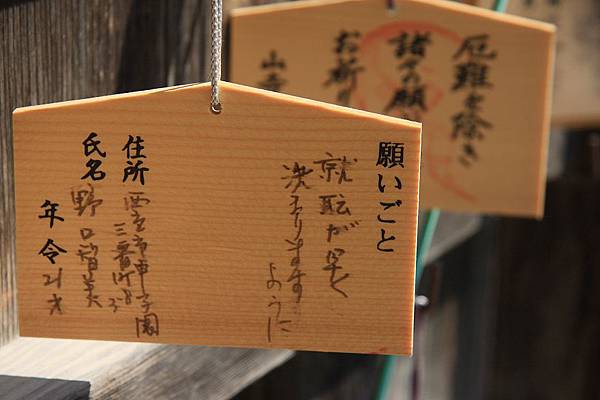 願いごと
就転が早く
決まりますように
住所 西宮市甲子園三番町8-3
氏名 野口智美
年令 21才
厄難を除き
諸々の願い
お祈り
山寺